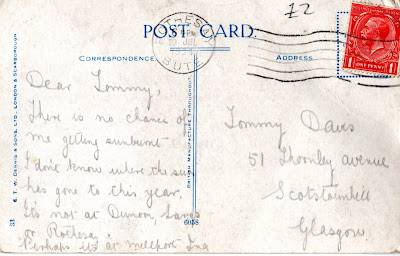 12
POST CARD.
ROTHESAY
PM
JUL
BUTE
ONE PENNY
CORRESPONDENCE
ADDRESS
Dear Tommy,
There is no chance of
me getting sunburnt
I don't know where the sun
has gone to this year.
Its not at Dunoon, Largs
or Rothesay.
Perhaps its at millport
Tommy Davis
51 Thornley avenue
Scotstounhill
Glasgow
E. T. W. DENNIS & SONS, LTD., LONDON & SCARBOROUGH
33
BRITISH MANUFACTURE THROUGHOUT
6058